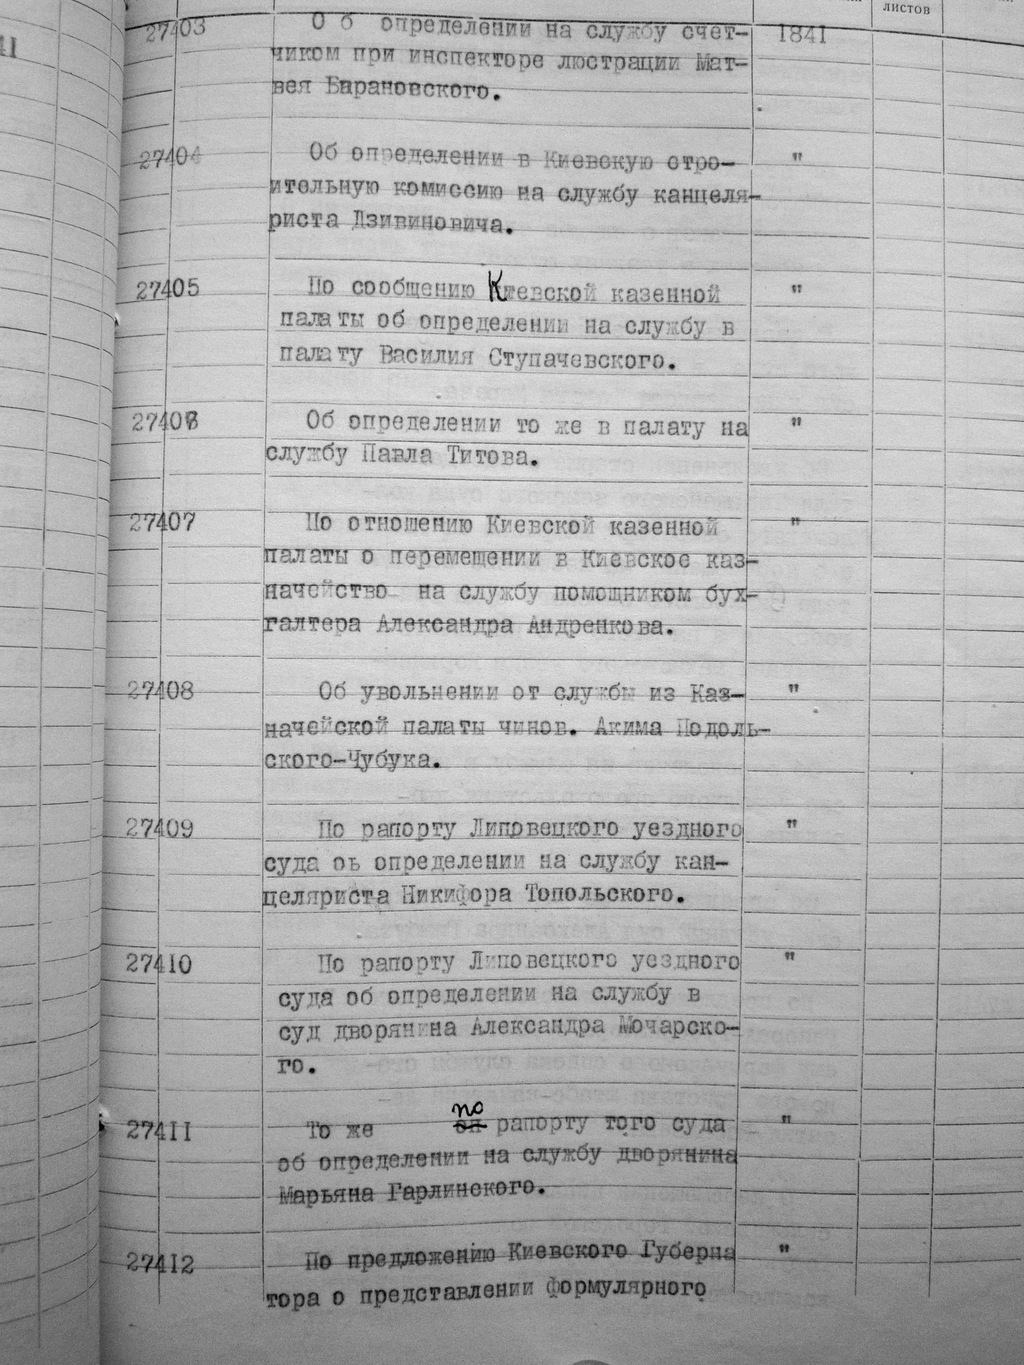 листов
27403 О б определении на службу счет- 1841
чиком при инспекторе люстрации Мат-
вея Барановского.
27404 Об определении в Киевскую стро- "
ительную комиссию на службу канцеля-
риста Дзивиновича.
27405 По сообщению Киевской казенной "
палаты об определении на службу в
палату Василия Ступачевского.
27406 Об определении то же в палату на "
службу Павла Титова.
27407 По отношению Киевской казенной "
палаты о перемещении в Киевское каз-
начейство на службу помощником бух-
галтера Александра Андренкова.
27408 Об увольнении от службы из Каз- "
начейской палаты чинов. Акима Подоль-
ского-Чубука.
27409 По рапорту Липовецкого уездного "
суда оь определении на службу кан-
целяриста Никифора Топольского.
27410 По рапорту Липовецкого уездного "
суда об определении на службу в
суд дворянина Александра Мочарско-
го.
27411 То же по рапорту того суда "
об определении на службу дворянина
Марьяна Гарлинского.
27412 По предложению Киевского Губерна "
тора о представлении формулярного